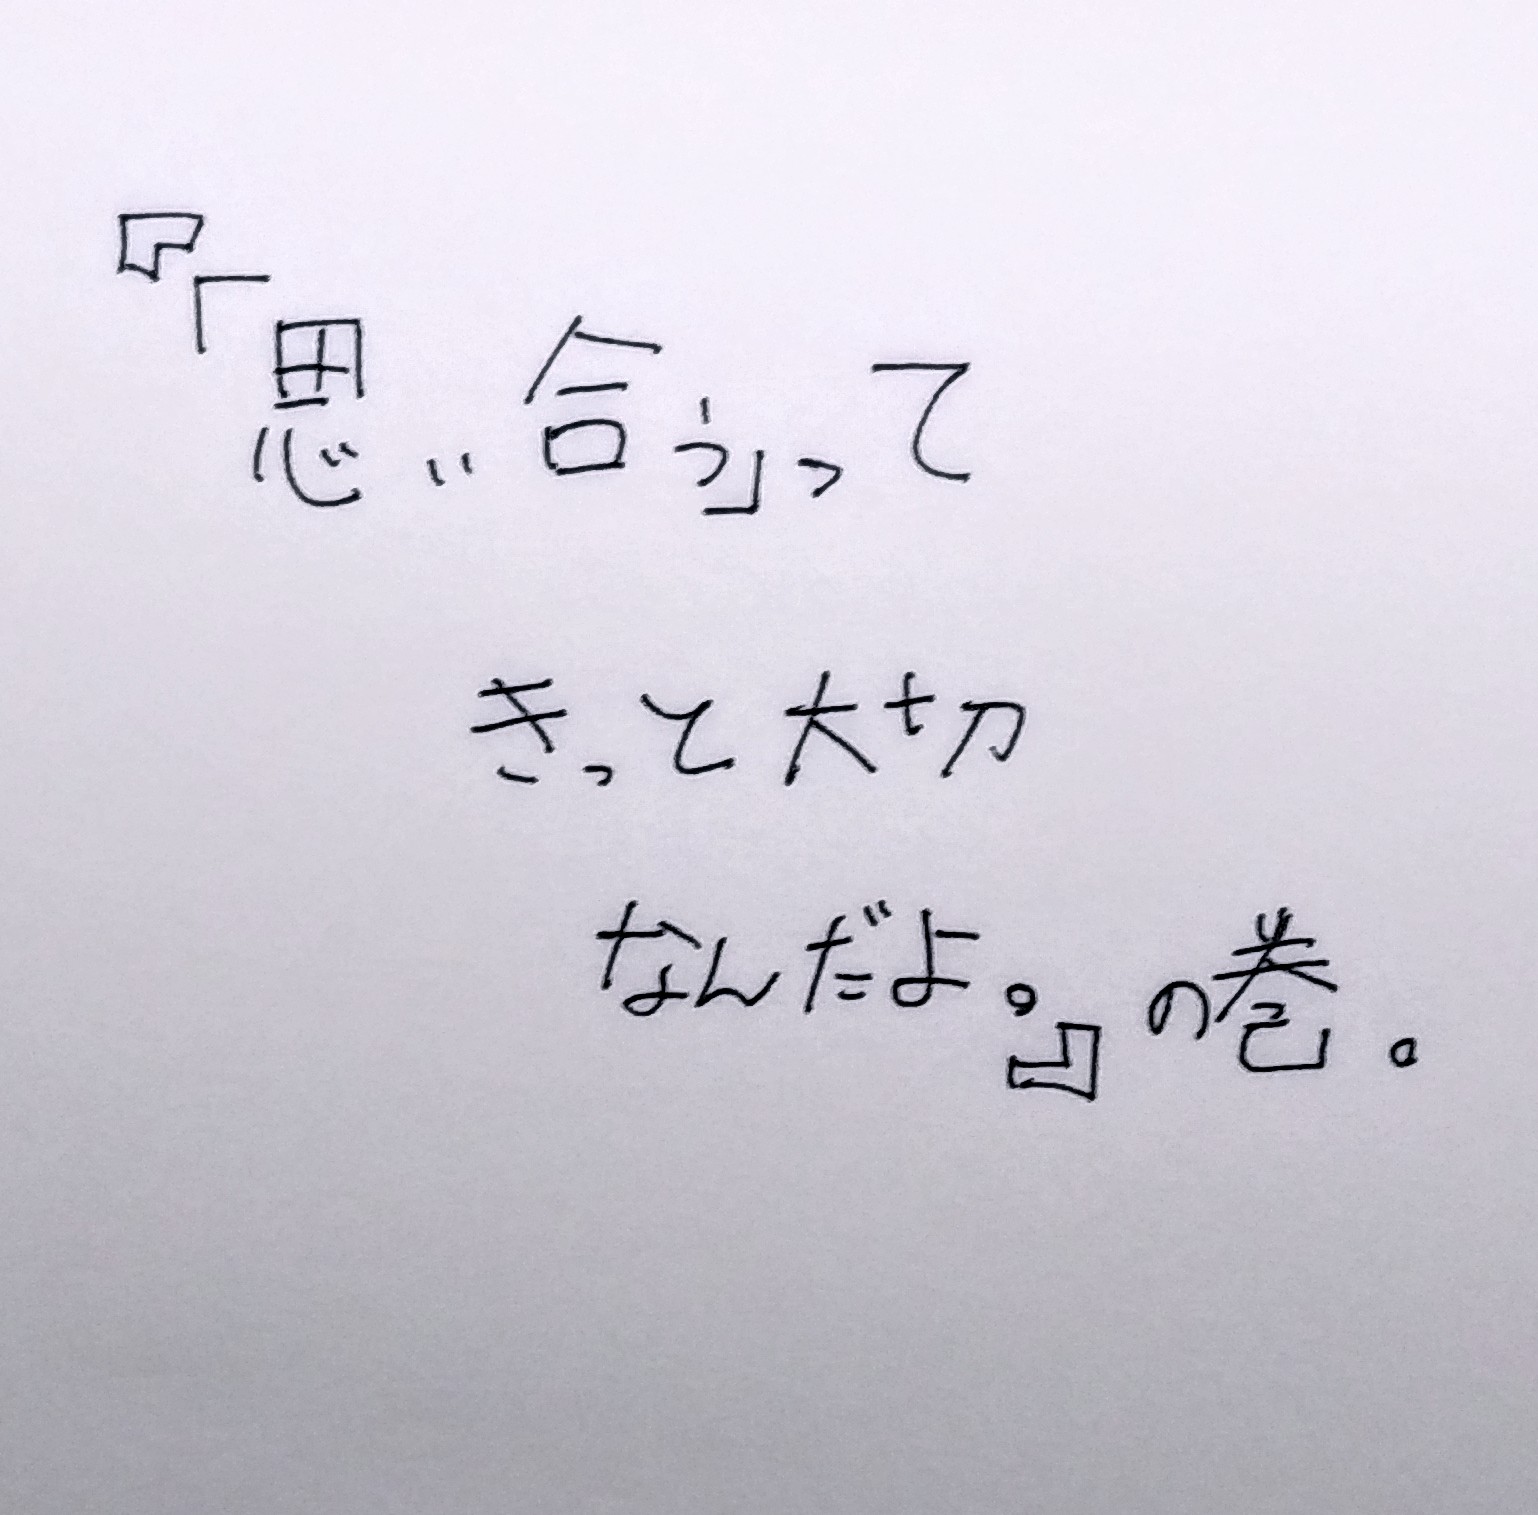 『「思い合う」って
きっと大切
なんだよ。』の巻。